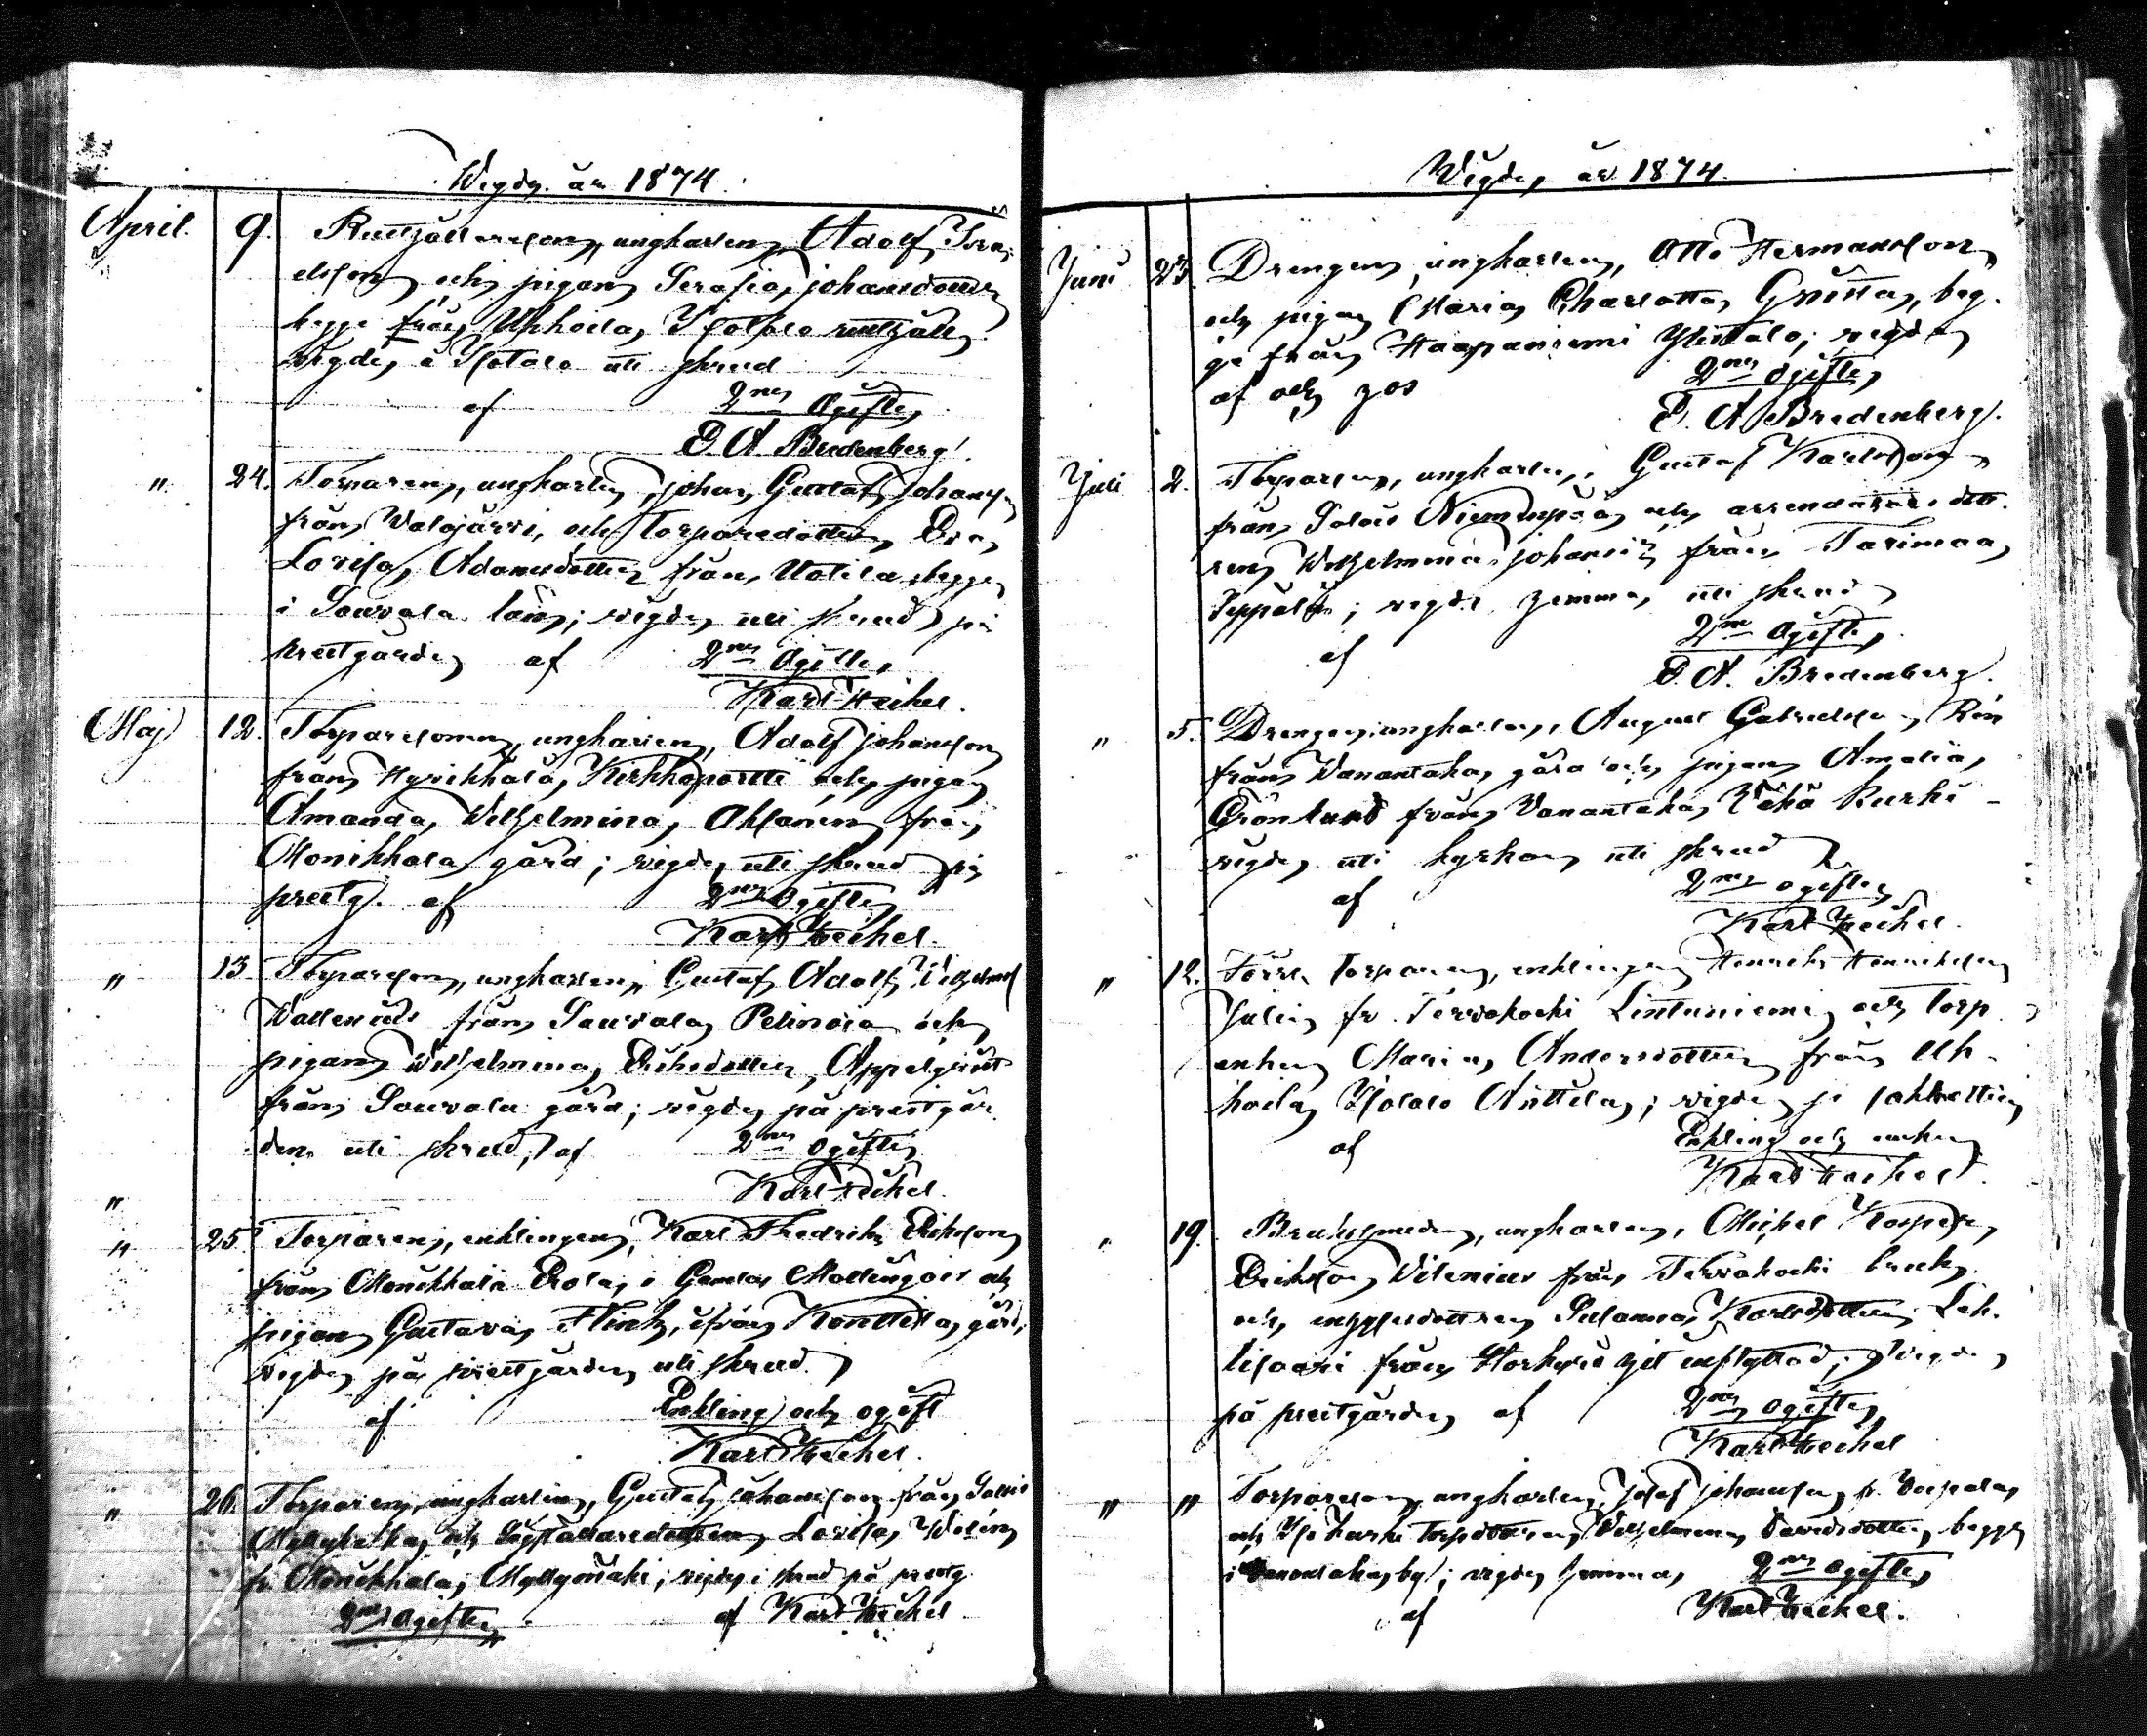 Wigde år 1874.
April. 9. Rusthållaresonen, ungkarlen, Adolf Isra-
elsson och pigan Serafia Johansdotter
begge från Uhkoila, Isotalo rusthåll
vigde å Isotalo uti skrud
af 2ne Ogifte
E. A. Bredenberg.
" 24. Torparen, ungkarlen, Johan Gustaf Johansson
från Walajärvi, och torparedottren Eva
Lovisa Adamsdotter från Uotila, begge
i Sauvala län; vigde uti skrud på
prestgården af 2ne Ogifte
Karl Heikel.
Maj 12. Torparesonen, ungkarlen, Adolf Johansson
från Hyvikkälä, Kirkkoportti och pigan
Amanda Wilhelmina Ahlanén från
Monikkala gård; vigde uti skrud på
prestg. af 2ne Ogifte
Karl Heikel.
" 13. Torpareson, ungkarlen, Gustaf Adolf Wilhelmsson
Wallenius från Sauvala och
pigan Wilhelmina Eriksdotter Appelqvist
från Sauvala gård; vigde på prestgår-
den uti skrud, af 2ne ogifte
Karl Heikel.
"
" 25. Torparen, enklingen, Karl Fredrik Eriksson
från Monikkala Erola, i Gamla och
pigan Gustava Flink, ifrån Konttila gård,
vigde på prestgården uti skrud
af Enkling och ogift
Karl Heikel.
" 26. Torparen, ungkarlen, Gustaf Johansson från
och Lovisa
fr. Monikkala, Myllymäki; vigde i skrud på prestg.
2ne Ogifte af Karl Heikel
Wigde år 1874.
Juni 23. Drengen, ungkarlen, Otto Hermansson
och pigan Maria Charlotta beg-
ge från Haapaniemi Ylistalo; vigde
af och hos 2ne Ogifte
E. A. Bredenberg.
Juli 2. Torparen, ungkarlen, Gustaf Karlsson
från Niemenpää och arrendatorsdott-
ren Wilhelmina från Tarimaa
Seppälä; vigde hemma, uti skrud
af 2ne Ogifte
E. A. Bredenberg.
" 5. Drengen, ungkarlen, August Gabrielsson
från Wanantaka gård och pigan Amalia
Grönlund från Vanantaka, Vähä Kurki-
vigde uti kyrkan uti skrud
af 2ne ogifte
Karl Heikel.
" 12. Förra torparen, enklingen Henrik Henriksson
fr. Tervakoski Lintuniemi och torp
enkan Maria Andersdotter från Uh-
koila Isotalo Anttila; vigde
af Enkling och enka
Karl Heikel.
" 19. Bruksmeden, ungkarlen, Mickel Kasper
Eriksson Wilenius från Tervakoski bruk
och Susanna Karlsdotter Leh-
tisaari från Storkyrö hit inflyttad; vigde
på prestgården af 2ne ogifte
Karl Heikel
" " Torpareson, ungkarlen, Josef Johansson fr.
och Iso Kurki torpdottren Wilhelmina Davidsdotter, begge
i Vanantaka by; vigde hemma, 2ne ogifte
af Karl Heikel.